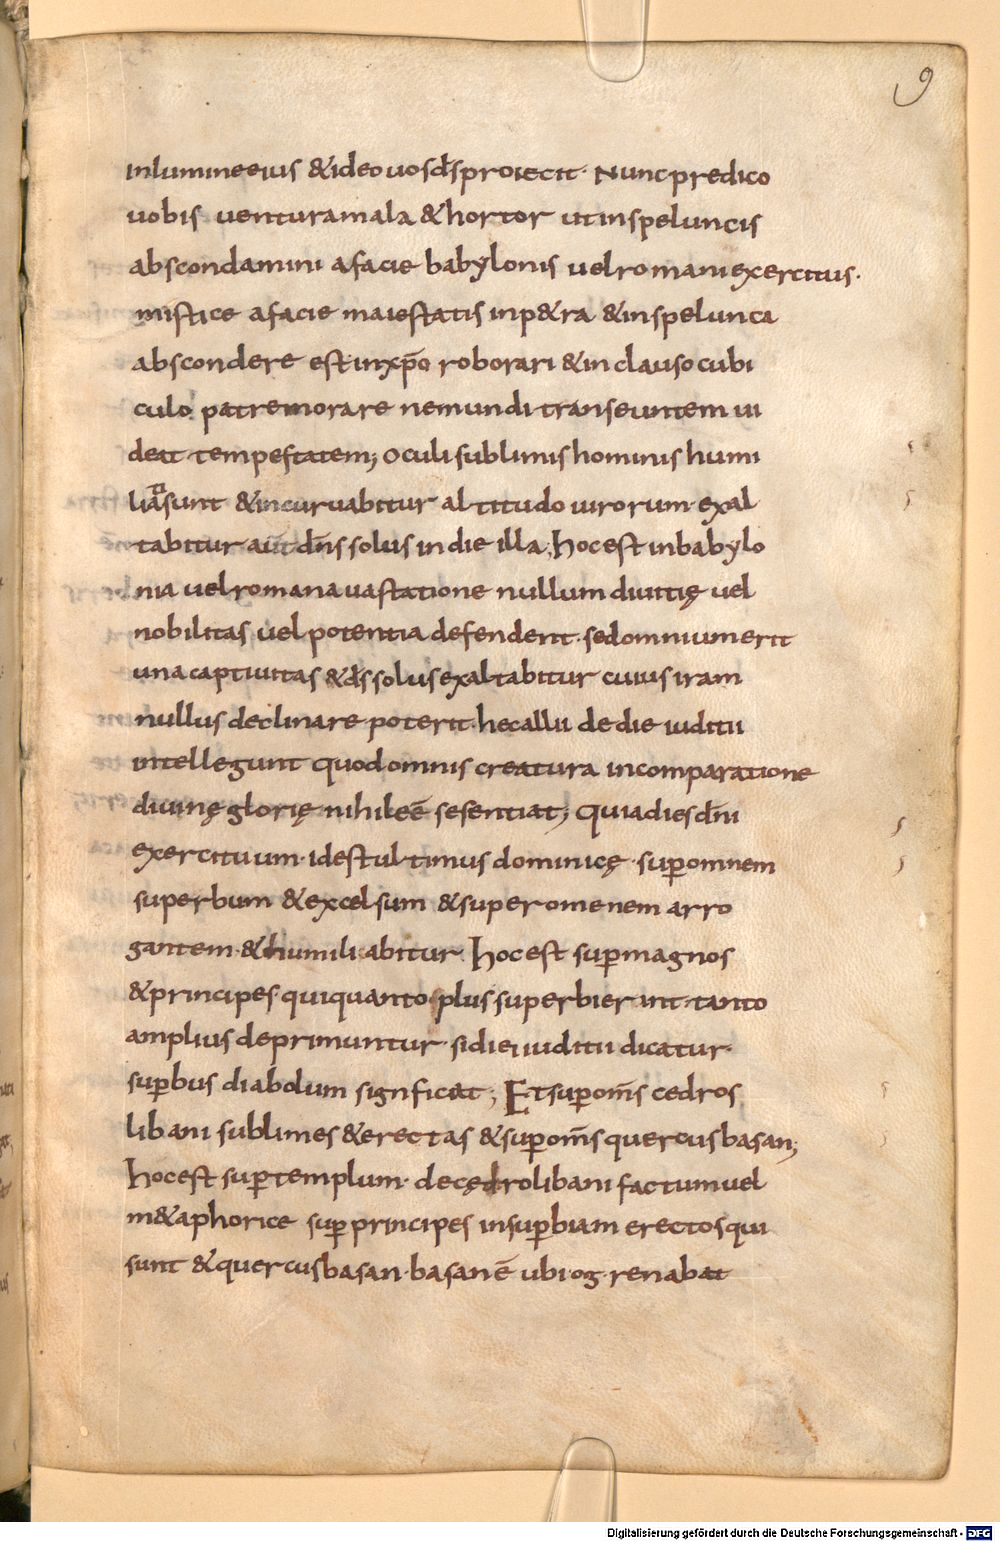 9
inlumineeius &ideo uos dſ̄ proiecit· Nunc predico
uobis uentura mala & hortor ut inspeluncis
abscondamini afacie babylonis uel romani exercitus·
mistice afacie maiestatis inp&ra & inspelunca
abscondere est inxp̄o roborari & in clauso cubi
culo patrem orare nemundi transeuntem ui
deat tempestatem; Oculi sublimis hominis humi
liaͣsunt & incuruabitur altitudo uirorum· exal
tabitur aut̄ dn̄s solus in die illa; hocest inbabylo
nia uel romana uastatione nullum diuitię uel
nobilitas uel potentia defenderit· sed omnium erit
una captiuitas & dſ̄ solus exaltabitur cuius iram
nullus declinare poterit· hec allii de die iuditii
intellegunt quod omnis creatura incomparatione
diuinę glorię nihileē sesentiat; Quia dies dn̄i
exercituum· idest ultimus dominicę· suꝑ omnem
superbum & excelsum & super omenem arro
gantem & humiliabitur· hocest suꝑ magnos
& principes· qui quanto plus superbierint· tanto
amplius deprimuntur· si diei iuditii dicatur·
suꝑbus diabolum signficat; Et suꝑ om̄s cedros
libani sublimes & erectas & suꝑ om̄s quercus basan;
hocest suꝑ templum· de cędro libani factum uel
m&aphorice suꝑ principes insuꝑbiam erectos qui
sunt & quercus basan· basan ē ubi og· renabat
Digitalisierung gefördert durch die Deutsche Forschungsgemeinschaft - DFG